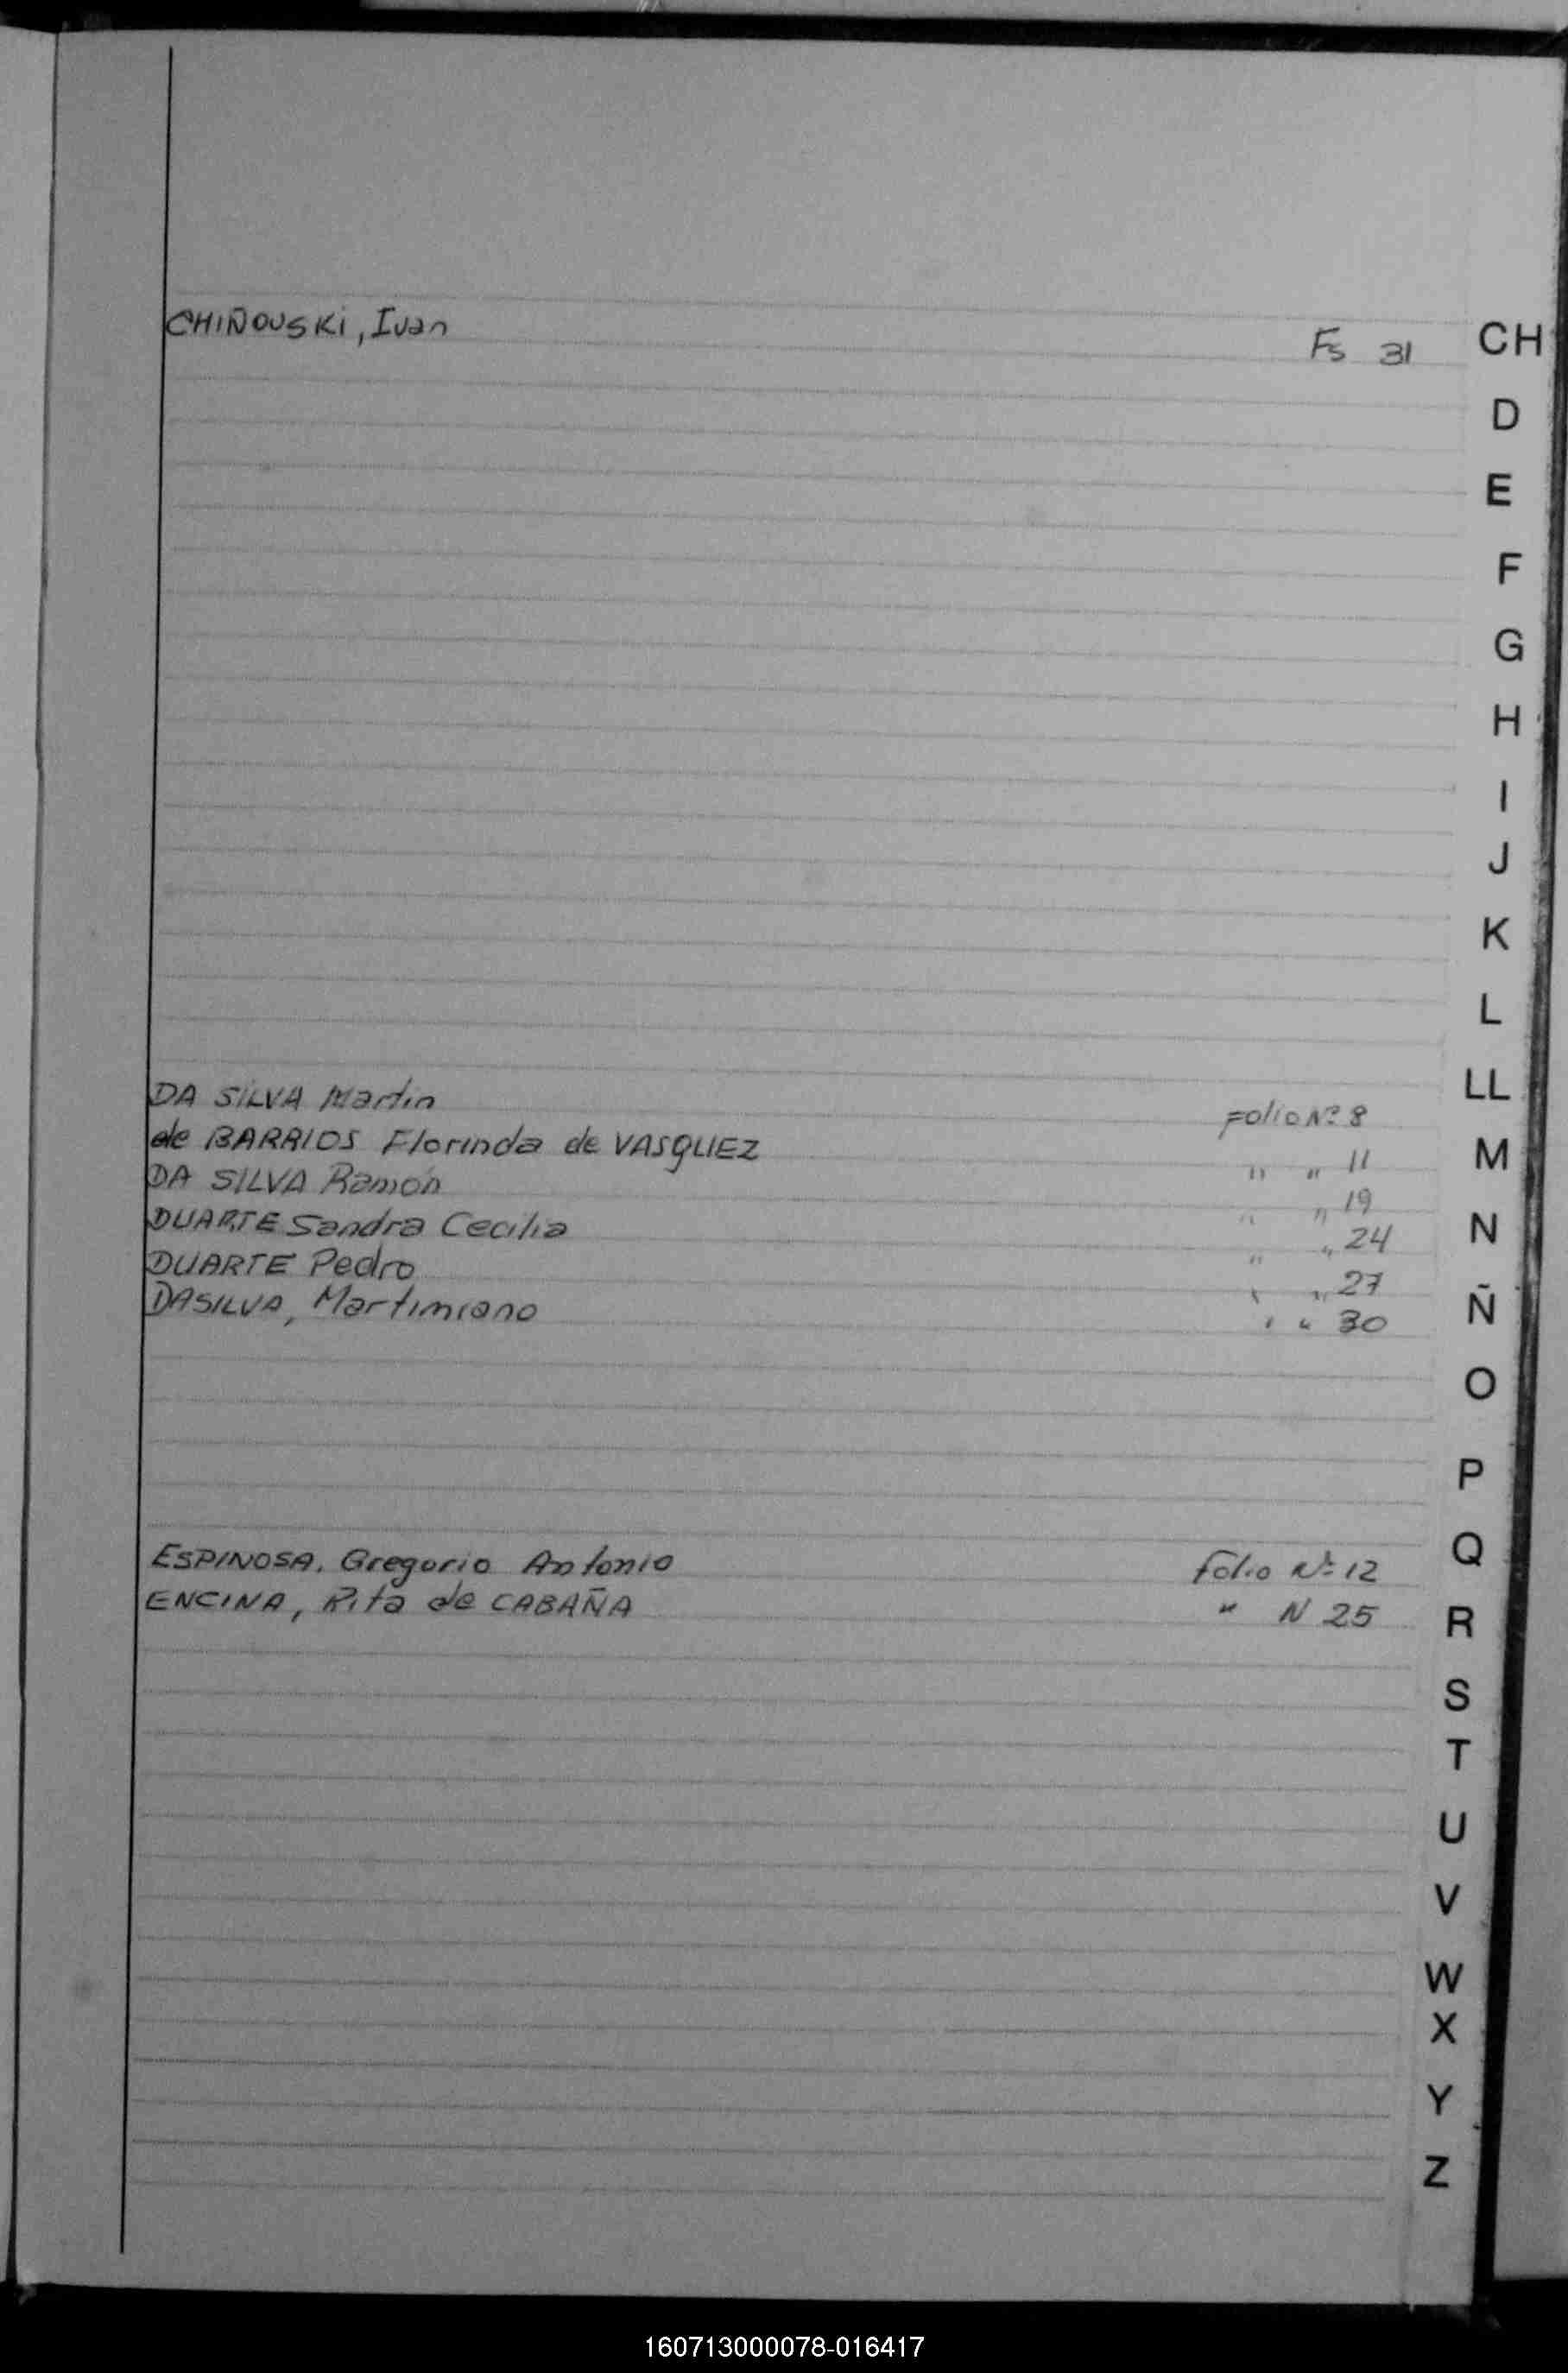 CHIÑOUSKi, Ivan Fs 31 CH
D
E
F
G
H
I
J
K
L
DA SiLVA Martin Folio Nº 8 LL
de BARRIOS Florinda de VASQUEZ " " 11 M
DA SILVA Ramón " " 19
DUARTE Sandra Cecilia " " 24 N
DUARTE Pedro " " 27
DASILVA, Martimiano " " 30 Ñ
O
P
ESPINOSA. Gregorio Antonio Folio Nº 12 Q
ENCINA, Rita de CABAÑA " N 25 R
S
T
U
V
W
X
Y
Z
160713000078-016417